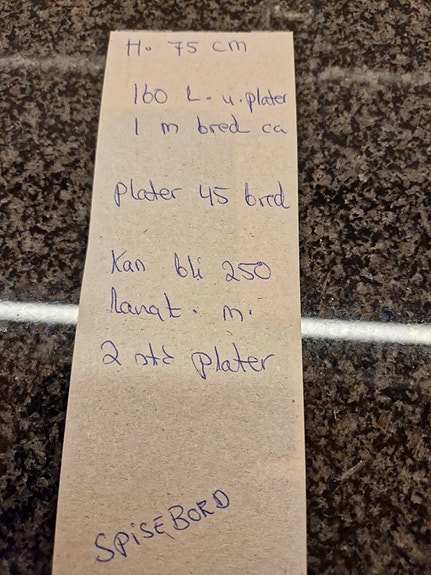 H. 75 cm
160 L. u. plater
1 m bred ca
plater 45 bred
Kan bli 250
langt. m.
2 stk plater
SPISEBORD